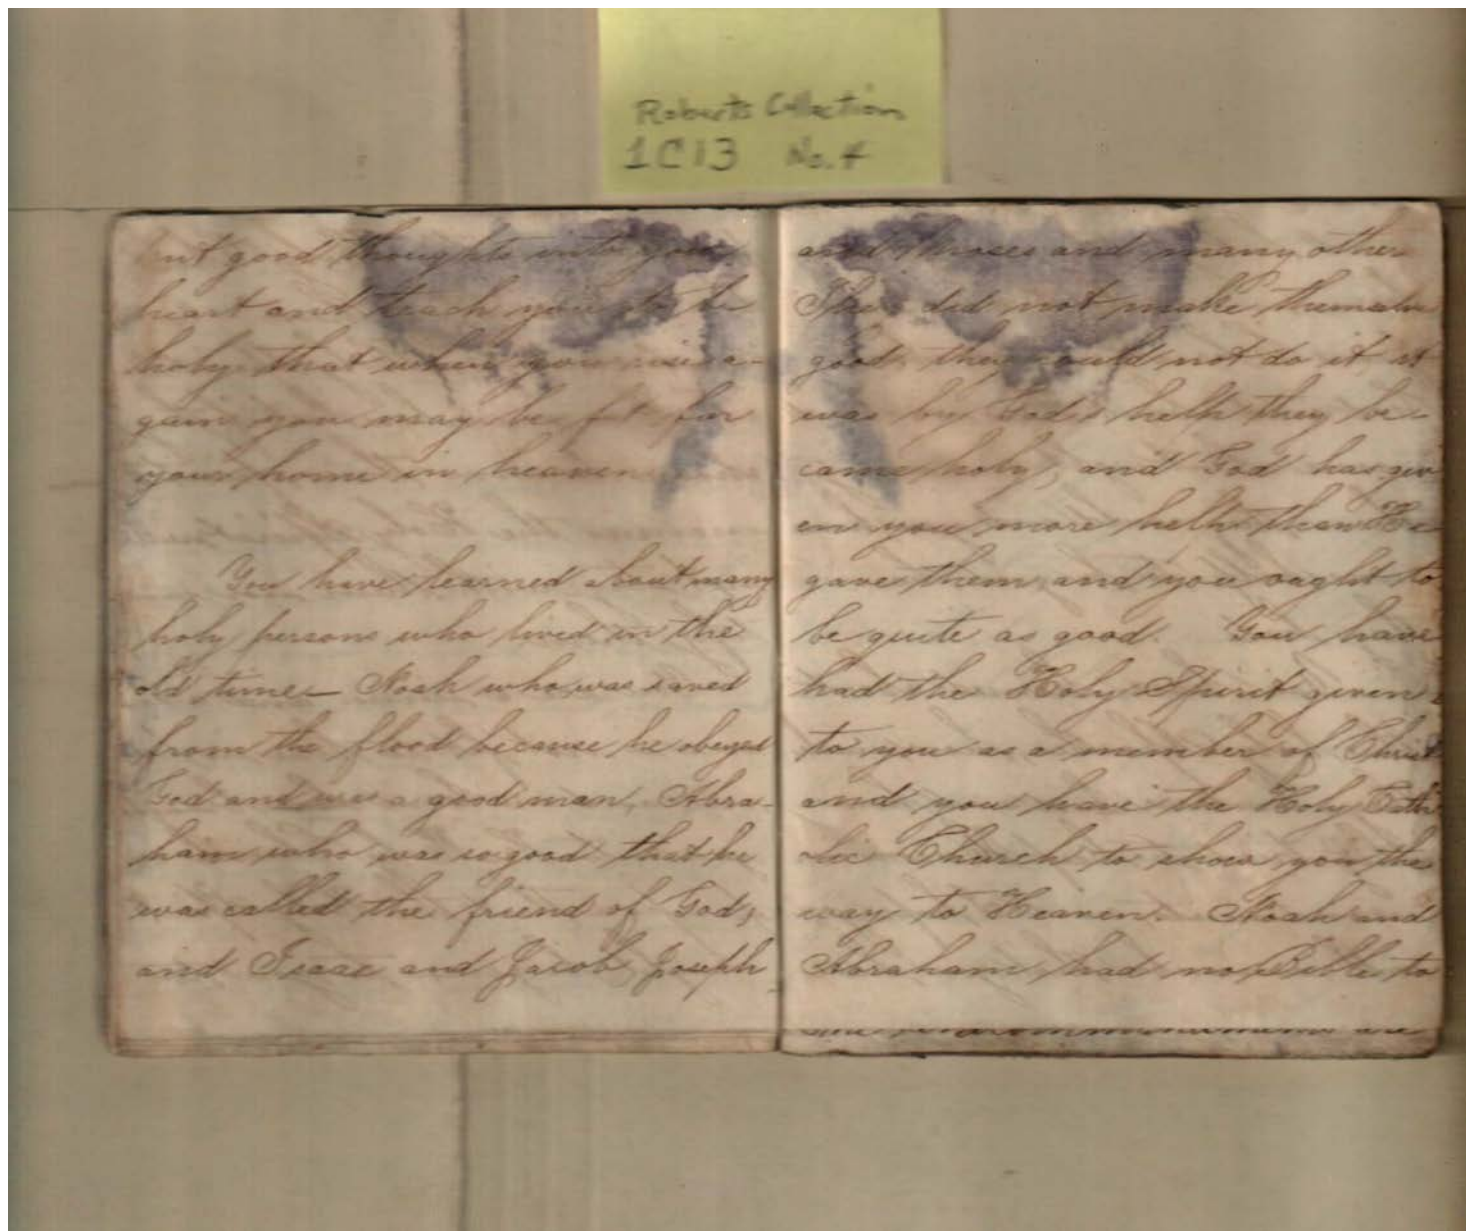 Roberts Collection
1C13 No. 4
put good thoughts into your
heart and teach you to be
holy that when you rise a-
gain you may be fit for
your home in heaven
You have learned about many
holy persons who lived in the
old time— Noah who was saved
from the flood because he obeyed
God and was a good man, Abra-
ham who was so good that he
was called the friend of God,
and Isaac and Jacob, Joseph
and Moses and many other
They did not make themselve
good, they could not do it it
was by God's help they be-
came holy, and God has giv
en you more help than He
gave them, and you ought to
be quite as good. You have
had the Holy Spirit given
to you as a member of Christ
and you have the Holy Cath
olic Church to show you the
way to Heaven. Noah and
Abraham had no Bible to